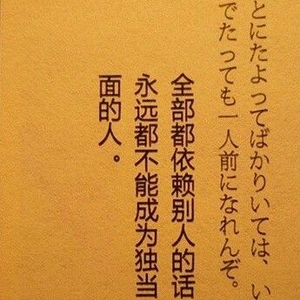 とにたよってばかりいては、い
でたっても一人前になれんぞ。
全部都依赖别人的话
永远都不能成为独当
面的人。